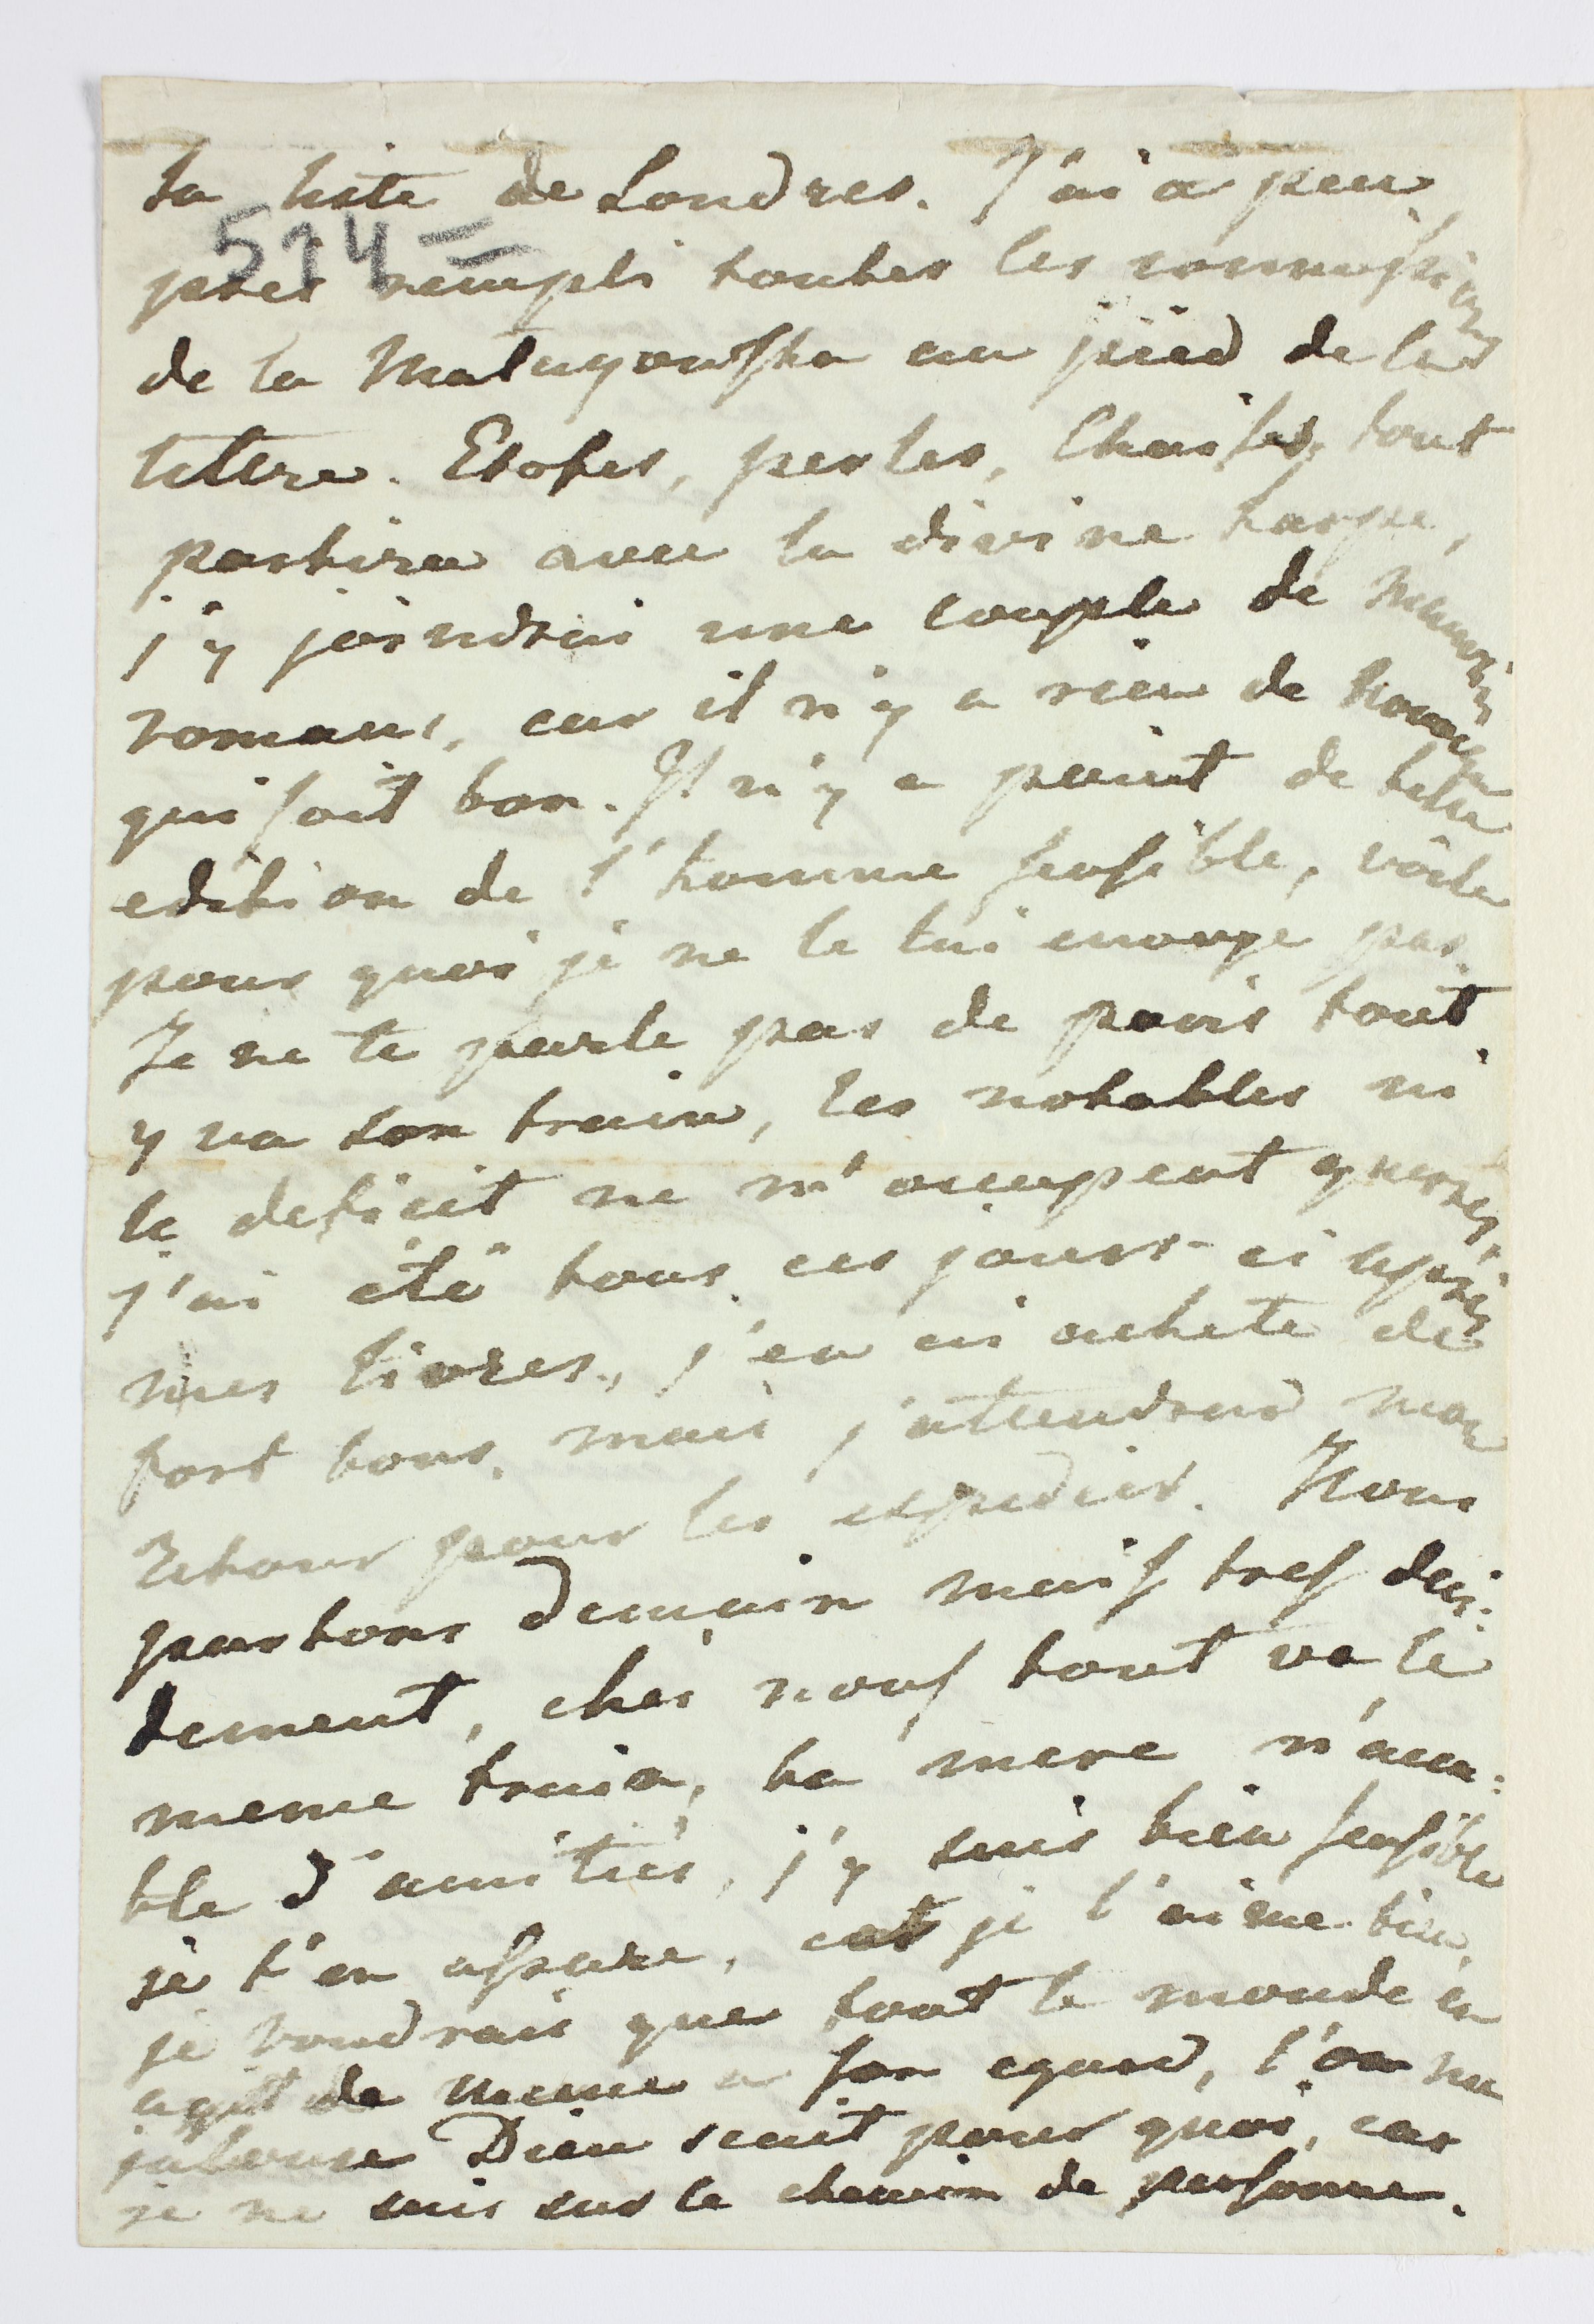 ta liste de Londres. J'ai a peu
574 =
pres rempli toutes les commissions
de la Matuyouska au pied de la
lettre. Etofes, perles, Chaises, tout
partira avec la divine harpe,
j'y joindrai une couple de mauvais
romans, car il n'y a rien de nouveau
qui soit bon. Il n'y a point de belle
edition de l'homme sensible, voila
pour quoi je ne le lui envoye pas.
Je ne te parle pas de paris tout
y va son train, les notables ni
le deficit ne m'occupent gueres,
j'ai été tous ces jours-ci après
mes livres, j'en ai acheté de
fort bons, mais j'attendrai mon
retour pour les expedier. Nous
partons demain mais tres deci:
dement, chez nous tout va le
meme train, ta mere m'acca:
ble d'amitiés, j'y suis bien sensible
je t'en assure, et je l'aime bien,
je voudrais que tout le monde en
agit de meme a son egard, l'on me
jalouse Dieu scait pour quoi, car
je ne suis sur le chemin de personne.